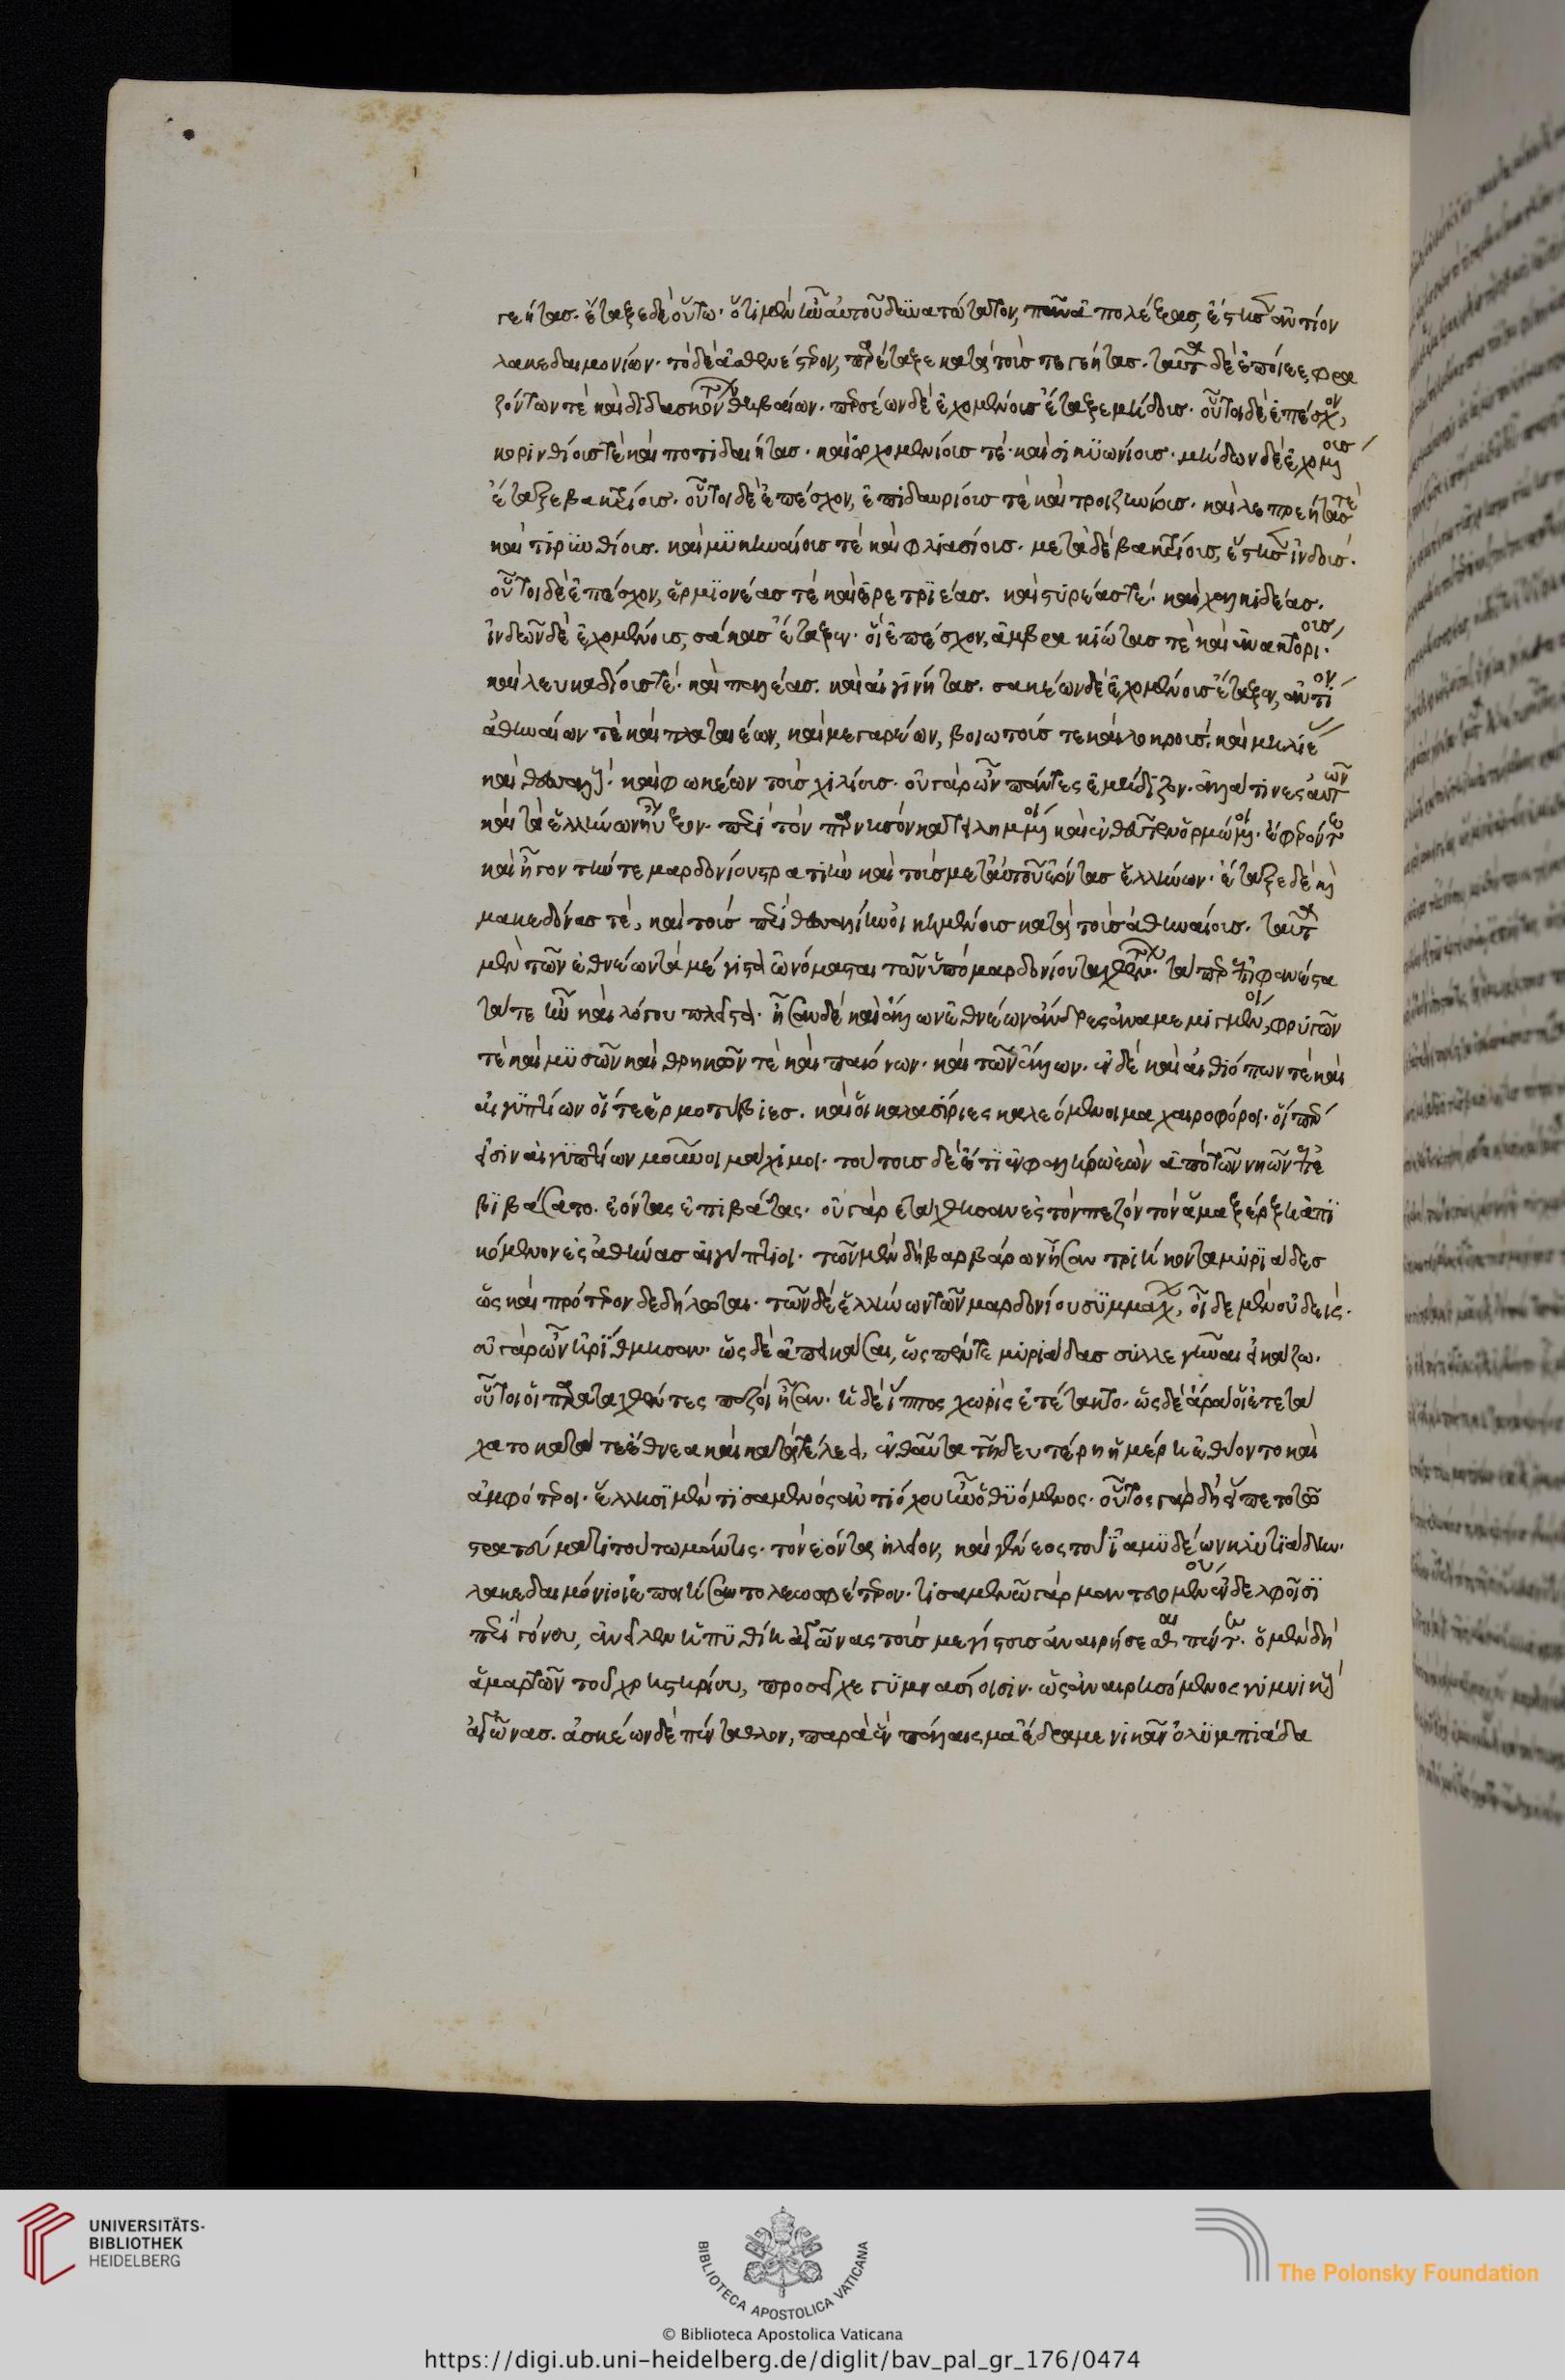 γεήτας. ἔταξε δὲ οὕτω. ὅτι μὲν ἦν αὐτοῦ δυνατώτατον, πᾶν ἀπολέξας, ἔστησε ἀντίον
λακεδαιμονίων. τὸ δὲ ἀσθενέστερον, παρέταξε κατὰ τοὺς τεγεήτας. ταῦτα δὲ ἐποίεε, φρα
ζόντων τὲ καὶ διδασκόντων θηβαίων. περσέων δὲ ἐχομένους ἔταξε μήδους. οὗτοι δὲ ἐπέσχον,
κορινθίους τὲ καὶ ποτιδαιήτας. καὶ ὀρχομενίους τέ. καὶ σικυωνίους. μήδων δὲ ἐχομένους
ἔταξε βακτρίους. οὗτοι δὲ ἐπέσχον, ἐπιδαυρίους τὲ καὶ τροιζηνίους. καὶ λεπρεήτας τὲ
καὶ τιρυνθίους. καὶ μυκηναίους τὲ καὶ φλιασίους. μετὰ δὲ βακτρίους, ἔστησε ἰνδούς.
οὗτοι δὲ ἐπέσχον, ἑρμιονέας τὲ καὶ ἐρετριέας. καὶ στυρέας τέ. καὶ χαλκιδέας.
ἰνδῶν δὲ ἐχομένους, σάκας ἔταξεν. οἳ ἐπέσχον, ἀμβρακιώτας τὲ καὶ ἀνακτορίους.
καὶ λευκαδίους τέ. καὶ παλέας. καὶ αἰγινήτας. σακέων δὲ ἐχομένους ἔταξεν, ἀντίον
ἀθηναίων τὲ καὶ πλαταιέων, καὶ μεγαρέων, βοιωτούς τε καὶ λοκρούς. καὶ μηλιέας
καὶ θεσσαλούς. καὶ φωκέων τοὺς χιλίους. οὐ γὰρ ὦν πάντες ἐμήδιζον. ἀλλά τινες αὐτῶν
καὶ τὰ ἑλλήνων ηὖξον. περὶ τὸν παρνησὸν κατειλημμένοι καὶ ἐνθεῦτεν ὁρμώμενοι. ἔφερόν τε
καὶ ἦγον τήν τε μαρδονίου στρατιὴν καὶ τοὺς μετ' αὐτοῦ ἐόντας ἑλλήνων. ἔταξε δὲ καὶ
μακεδόνας τέ, καὶ τοὺς περὶ θεσσαλίην οἰκημένους κατὰ τοὺς ἀθηναίους. ταῦτα
μὲν τῶν ἐθνέων τὰ μέγιστα ὠνόμασται τῶν ὑπὸ μαρδονίου ταχθέντων. τά περ ἐπιφανέστα
τά τε ἦν καὶ λόγου πλείστου. ἦσαν δὲ καὶ ἄλλων ἐθνέων ἄνδρες ἀναμεμιγμένοι, φρυγῶν
τὲ καὶ μυσῶν καὶ θρηκῶν τὲ καὶ παιόνων. καὶ τῶν ἄλλων. ἐν δὲ καὶ αἰθιόπων τὲ καὶ
αἰγυπτίων οἵ τε ἑρμοτυβίες. καὶ οἱ καλασίριες καλεόμενοι μαχαιροφόροι. οἵ περ
εἰσὶν αἰγυπτίων μοῦνοι μάχιμοι. τούτους δὲ ἔτι ἐν φαλήρῳ ἐὼν ἀπὸ τῶν νηῶν ἀπε
βιβάσατο. ἐόντας ἐπιβάτας. οὐ γὰρ ἐτάχθησαν ἐς τὸν πεζὸν τὸν ἅμα ξέρξῃ ἀπι
κόμενον ἐς ἀθήνας αἰγύπτιοι. τῶν μὲν δὴ βαρβάρων ἦσαν τριήκοντα μυριάδες
ὡς καὶ πρότερον δεδήλωται. τῶν δὲ ἑλλήνων τῶν μαρδονίου συμμάχων, οἶδε μὲν οὐδείς.
οὐ γὰρ ὦν ἠριθμήθησαν. ὡς δὲ ἀπεικάσαι, ὡς πέντε μυριάδας συλλεγῆναι εἰκάζω.
οὗτοι οἱ παραταχθέντες πεζοὶ ἦσαν. ἡ δὲ ἵππος χωρὶς ἐτέτακτο. ὡς δὲ ἄρα οἱ ἐτετά
χατο κατά τε ἔθνεα καὶ κατὰ τέλεα, ἐνθαῦτα τῇ δευτέρῃ ἡμέρῃ ἐθύοντο καὶ
ἀμφότεροι. ἕλλησι μὲν τισαμενὸς ἀντιόχου ἦν ὁ θυόμενος. οὗτος γὰρ δὴ εἵπετο τῷ
στρατεύματι τούτῳ μάντις. τὸν ἐόντα ἠλεῖον, καὶ γένεος τοῦ ἰαμιδέων κλυτιάδην.
λακεδαιμόνιοι ἐποιήσαντο λεωσφέτερον. τισαμενῷ γὰρ μαντευομένου ἐν δελφοῖσι
περὶ γόνου, ἀνεῖλεν ἡ πυθίη ἀγῶνας τοὺς μεγίστους ἀναιρήσεσθαι πέντε. ὁ μὲν δὴ
ἁμαρτὼν τοῦ χρηστηρίου, προσεῖχε γυμνασίοισιν. ὡς ἀναιρησόμενος γυμνικοὺς
ἀγῶνας. ἀσκέων δὲ πένταθλον, παρὰ ἓν πάλαισμα ἔδραμε νικᾶν ὀλυμπιάδα
UNIVERSITÄTS-
BIBLIOTHEK
HEIDELBERG
BIBLIOTECA APOSTOLICA VATICANA
The Polonsky Foundation
© Biblioteca Apostolica Vaticana
https://digi.ub.uni-heidelberg.de/diglit/bav_pal_gr_176/0474